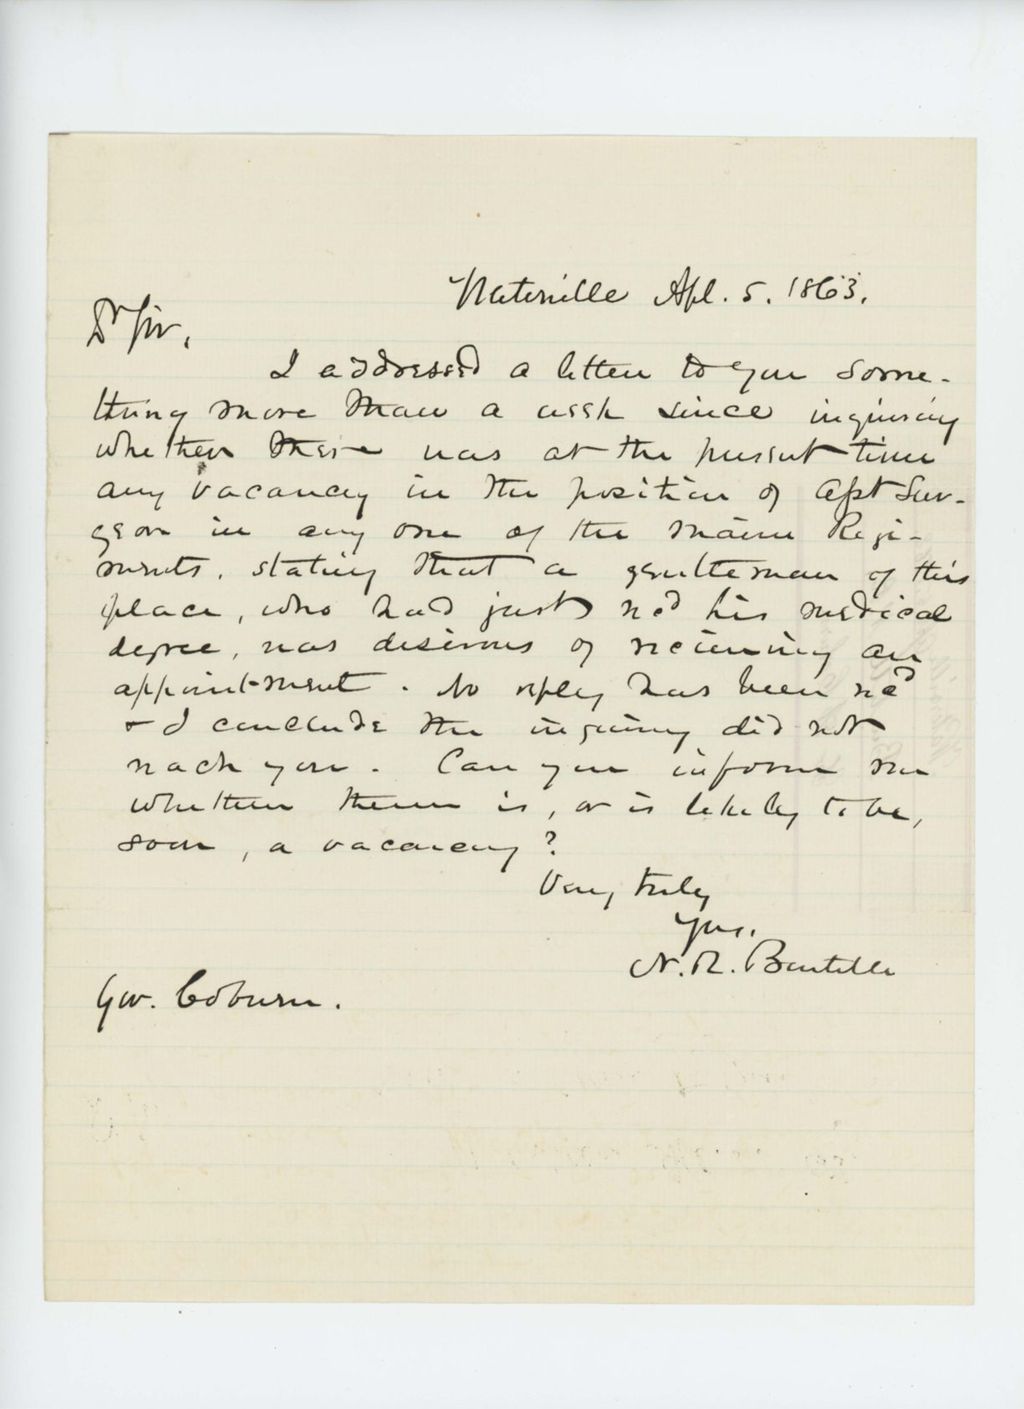 Waterville Apl. 5. 1863.
Dr Sir,
I addressed a letter to you some-
thing more than a week since inquiring
whether there was at the present time
any vacancy in the position of Asst Sur-
geon in any one of the Maine Regi-
ments, stating that a gentleman of this
place, who had just recd his medical
degree, was desirous of receiving an
appointment. No reply has been recd
& I conclude the inquiry did not
reach you. Can you inform me
whether there is, or is likely to be,
soon, a vacancy?
Very truly
Yrs.
N. R. Boutelle
Gov. Coburn.